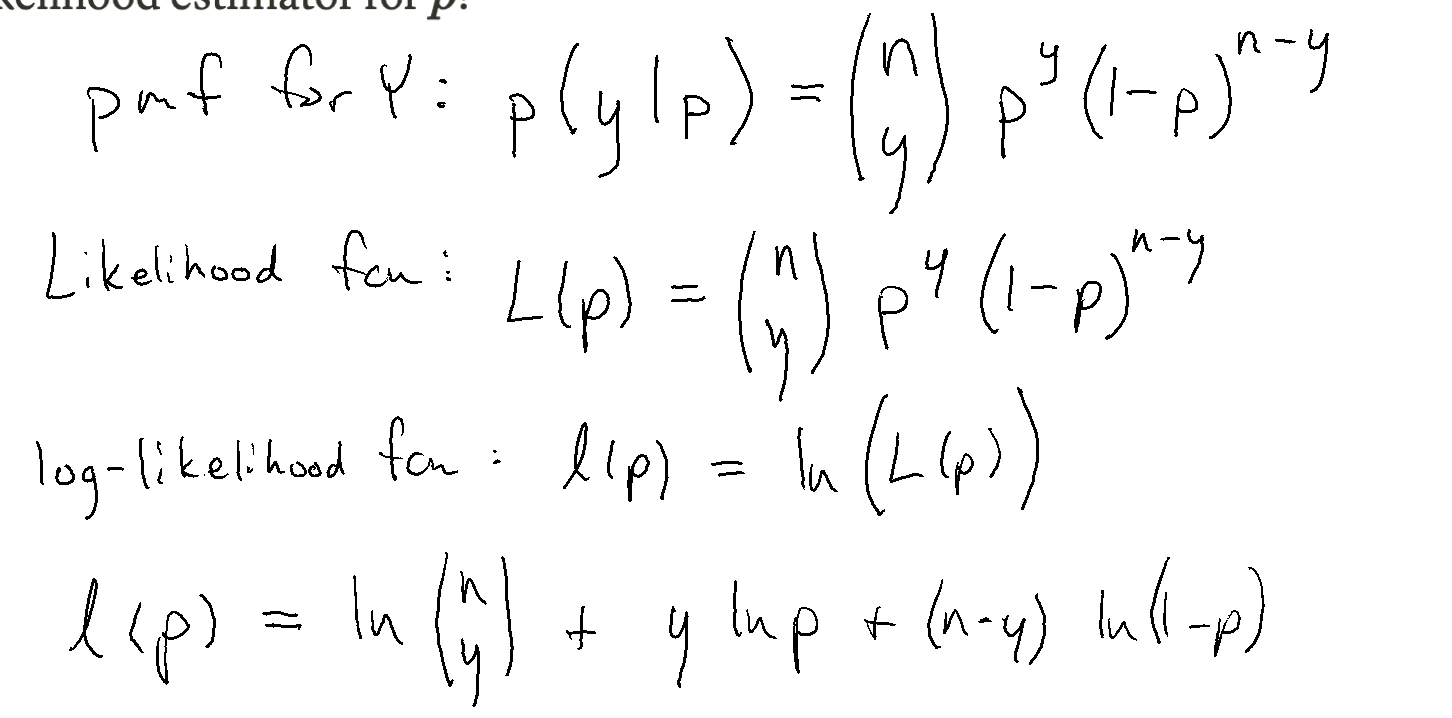 likelihood estimator for p?
pmf for Y: p(y|p) = (n y) p^y (1-p)^{n-y}
Likelihood fcn: L(p) = (n y) p^y (1-p)^{n-y}
log-likelihood fcn: l(p) = ln(L(p))
l(p) = ln (n y) + y ln p + (n-y) ln(1-p)